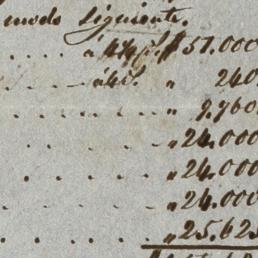 modo siguiente.
$ 51.000
" 240
" 9.760
" 24.000
" 24.000
" 24.000
" 25.625